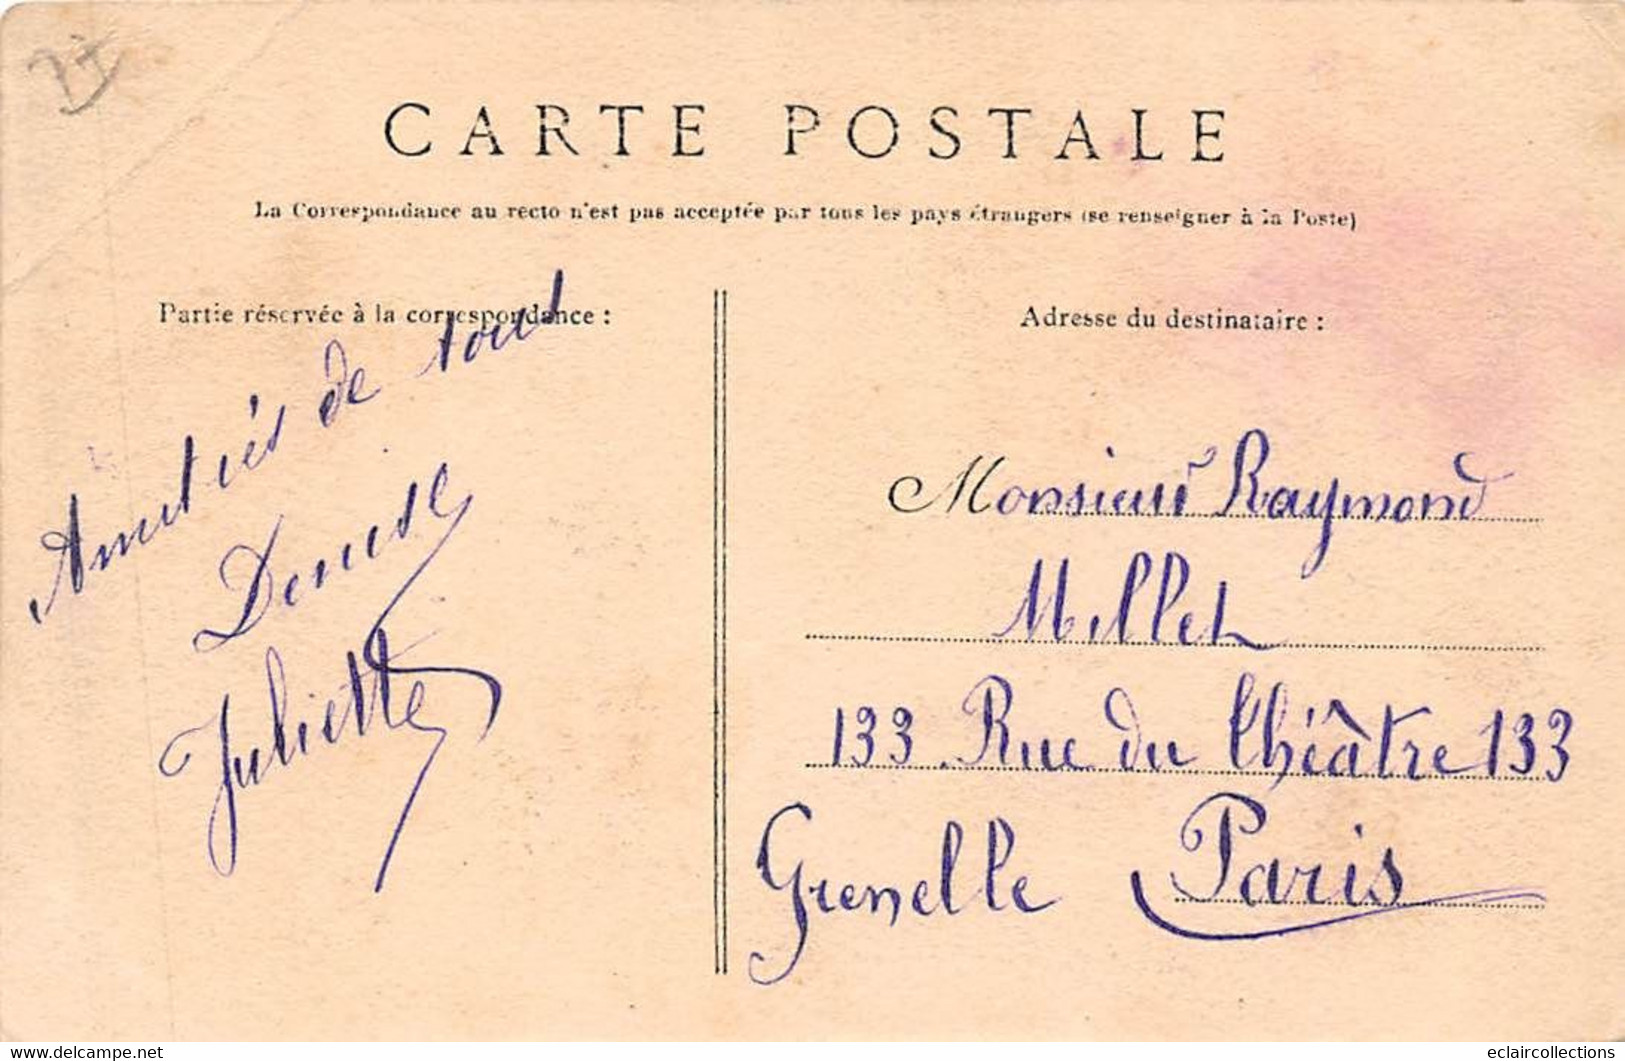 CARTE POSTALE
La Correspondance au recto n'est pas acceptée par tous les pays étrangers (se renseigner à la Poste)
Partie réservée à la correspondance :
Amitiés de tous
Denise
Juliette
Adresse du destinataire :
Monsieur Raymond
Millet
133 Rue du Théâtre 133
Grenelle Paris
www.delcampe.net
eclaircollections